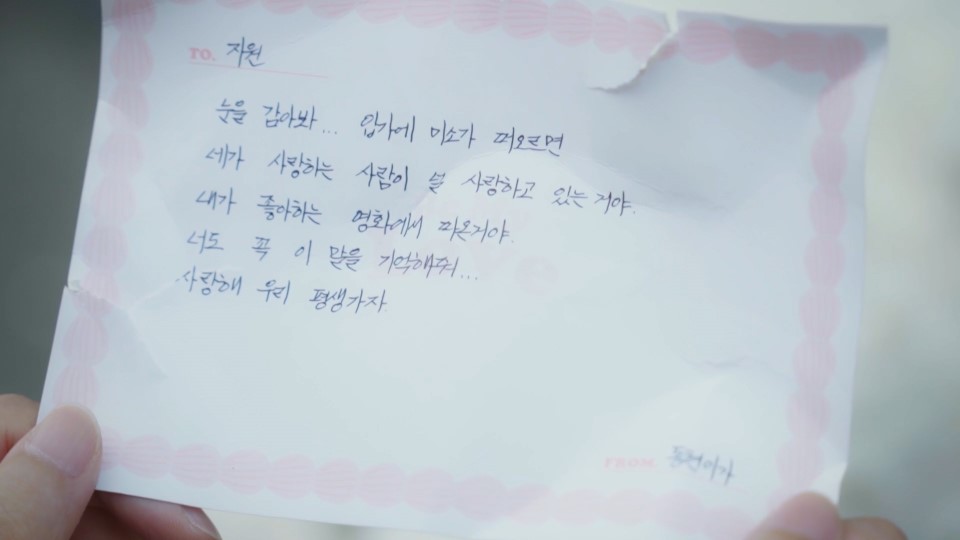 TO. 지원
눈을 감아봐... 입가에 미소가 떠오르면
네가 사랑하는 사람이 널 사랑하고 있는거야.
내가 좋아하는 영화에서 따온거야.
너도 꼭 이 말을 기억해줘...
사랑해 우리 평생가자.
FROM.